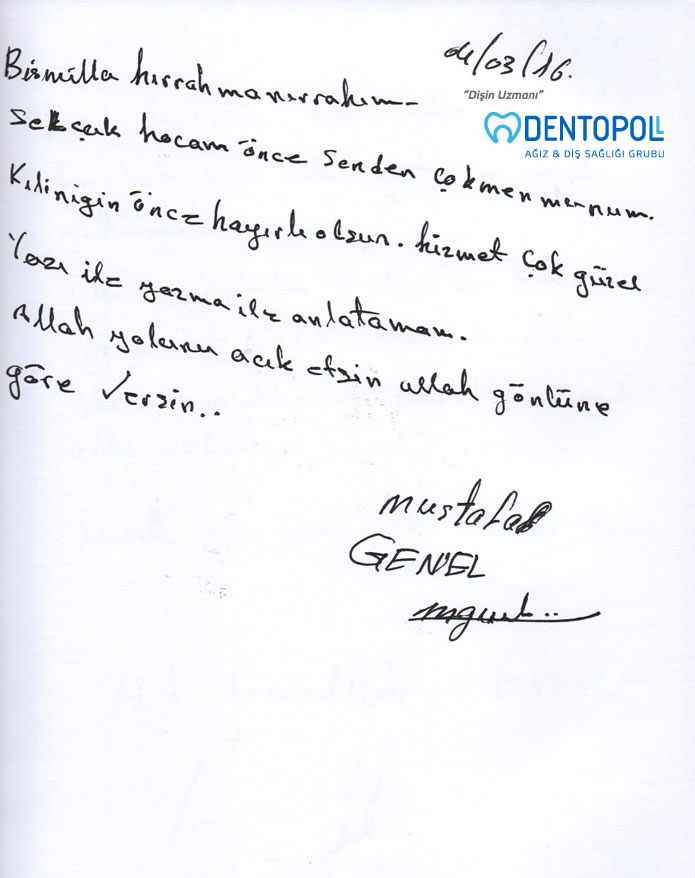 04/03/16.
Bismilla hırrahmanırrahım-
"Dişin Uzmanı"
DENTOPOLL
AĞIZ & DİŞ SAĞLIĞI GRUBU
Selçuk hocam önce senden çokmenmenum.
Kılinigin önce hayırlı olsun. hizmet çok güzel
Yazı ile yazma ile anlatamam.
Allah yolunu açık etsin allah gönlüne
göre versin..
mustafa
GENEL